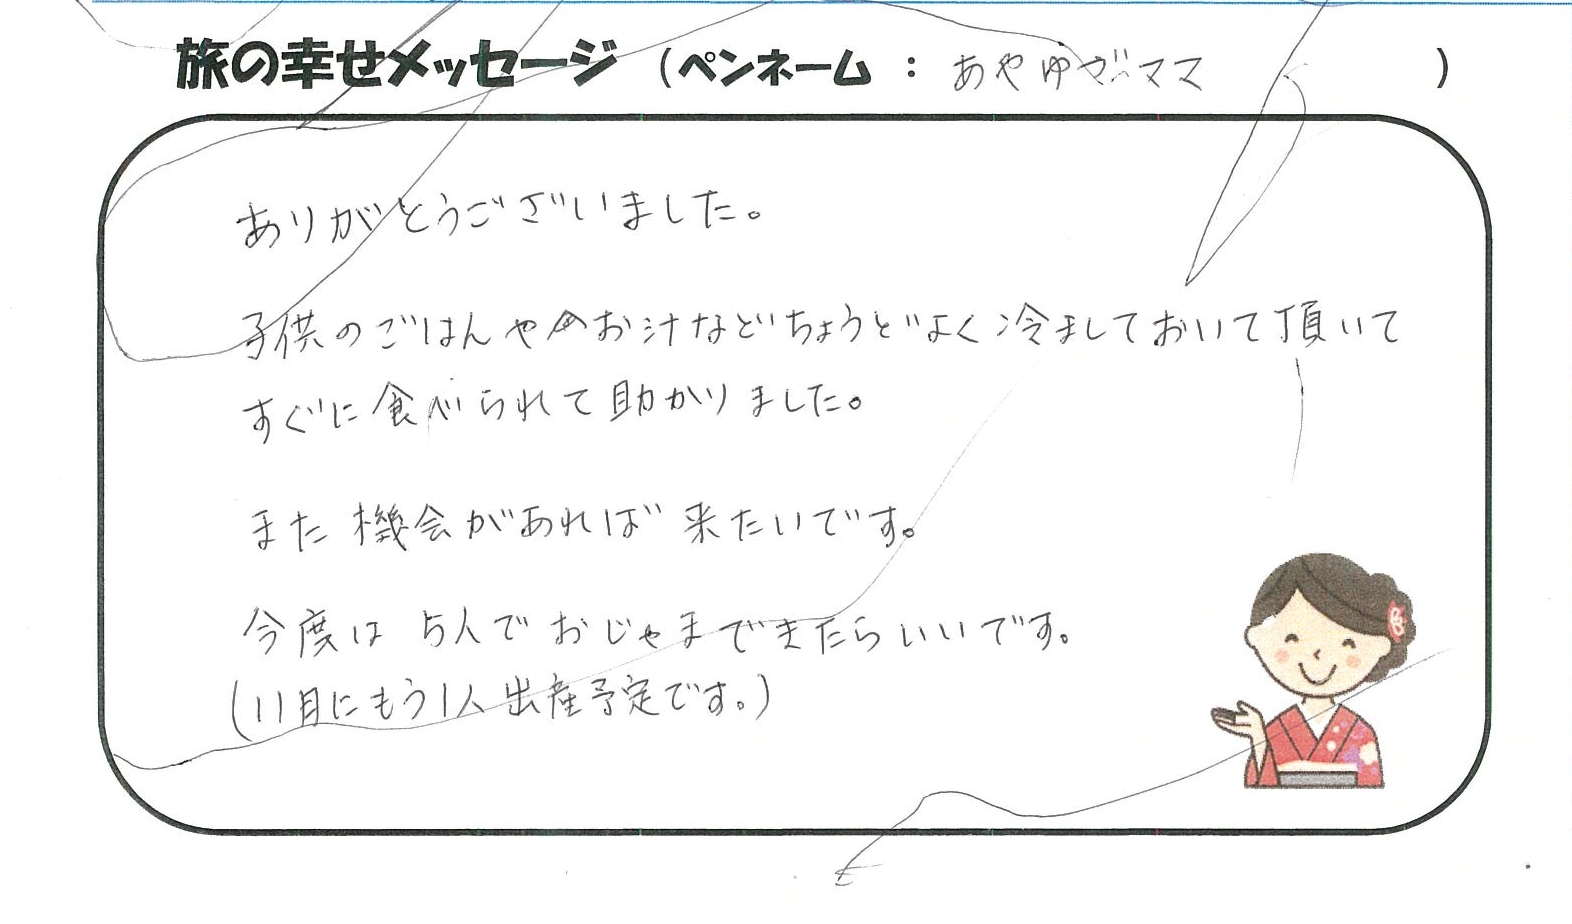 旅の幸せメッセージ (ペンネーム : あやゆずママ )
ありがとうございました。
子供のごはんやお汁などちょうどよく冷ましておいて頂いて
すぐに食べられて助かりました。
また機会があれば来たいです。
今度は5人でおじゃまできたらいいです。
(11月にもう1人出産予定です。)